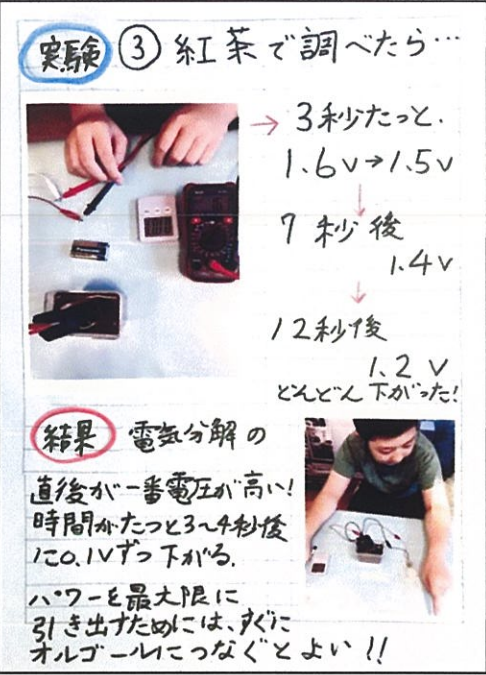 実験 ③ 紅茶で調べたら…
→ 3秒たっと.
1.6V→1.5V
↓
7秒後
1.4V
↓
12秒後
1.2V
どんどん下がった!
結果 電気分解の
直後が一番電圧が高い!
時間がたつと3~4秒後
に0.1Vずつ下がる.
パワーを最大限に
引き出すためには、すぐに
オルゴールにつなぐとよい!!